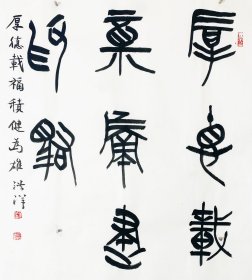 厚德載
福積健
為雄
厚德載福積健為雄